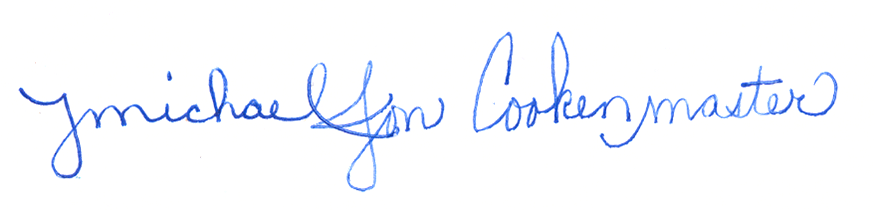 Michael Jon Cookenmaster